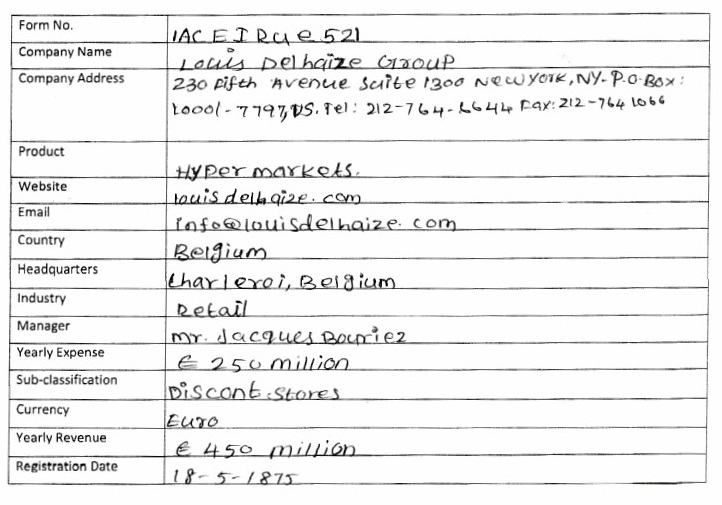 Form No. IACEIRue521
Company Name Louis Delhaize Group
Company Address 230 Fifth Avenue Suite 1300 New York, NY. P.O.Box:
10001-7797, US. Tel: 212-764-6644 Fax: 212-764 1066
Product Hyper markets.
Website louisdelhaize.com
Email info@louisdelhaize.com
Country Belgium
Headquarters Charleroi, Belgium
Industry Retail
Manager Mr. Jacques Bouriez
Yearly Expense € 250 million
Sub-classification Discont.Stores
Currency Euro
Yearly Revenue € 450 million
Registration Date 18-5-1875